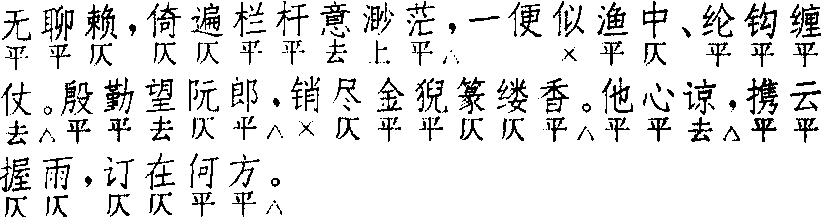 无聊赖，倚遍栏杆意渺茫，一便似渔中、纶钩缠
平平仄　仄仄平平去上平△　×平仄　平平平
仗。殷勤望阮郎，销尽金猊篆缕香。他心谅，携云
去△平平去仄平△×仄平平仄仄平△平平去△平平
握雨，订在何方。
仄仄　仄仄平平△